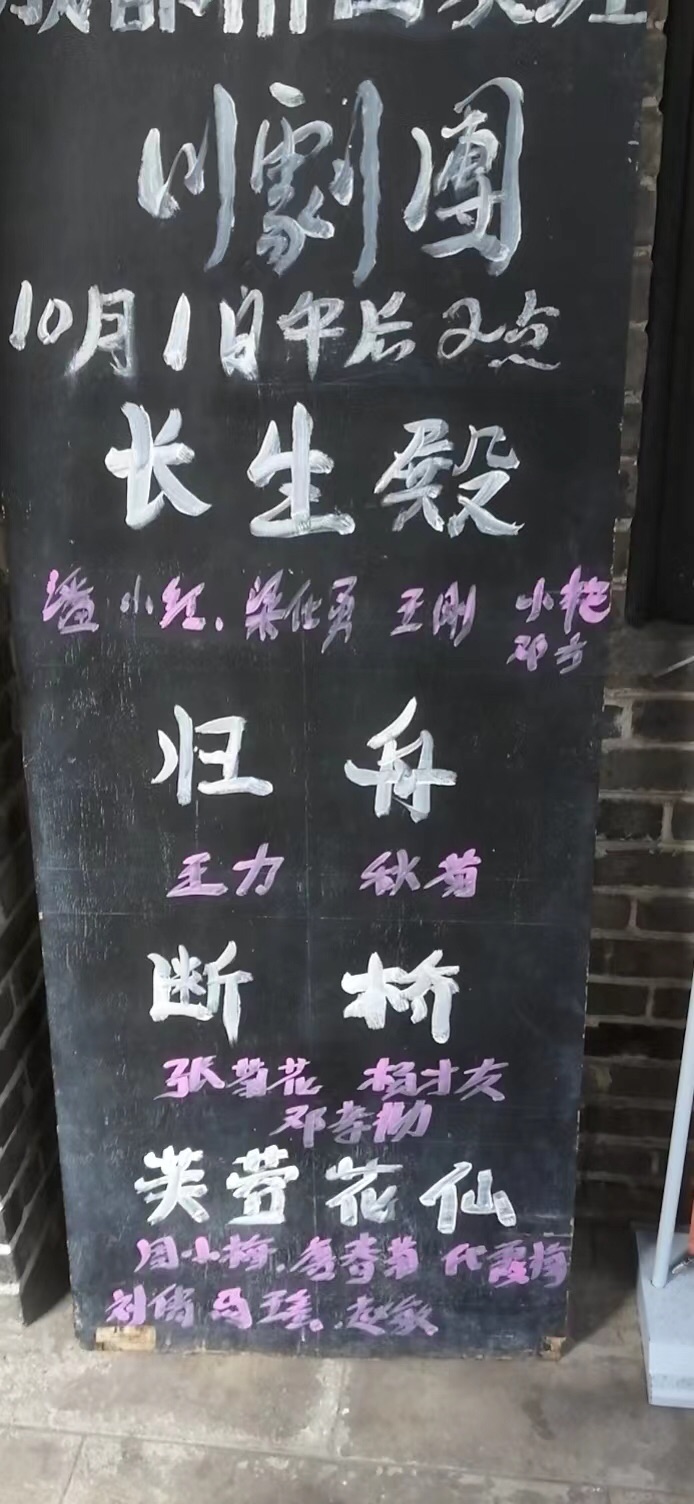 川劇團
10月1日午后2点
长生殿
潘小红.梁化勇 王刚 小艳
邓方
归舟
王力 秋菊
断桥
张菊花 杨才友
邓孝勤
芙蓉花仙
周小梅. 春菊 代霞梅
刘倩 马瑶.赵敏